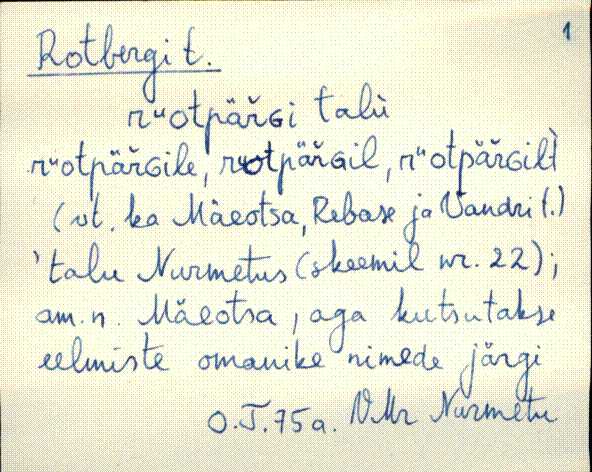 1
Rotbergi t.
rᵘotpäřGi talù
rᵘotpäřGile, rᵘotpäřGil, rᵘotpäřGilt̀
(vt. ka Mäeotsa, Rebase ja Vandri t.)
'talu Nurmetus (skeemil nr. 22);
am. n. Mäeotsa, aga kutsutakse
eelmiste omanike nimede järgi
O.T. 75a. VMr Nurmetu